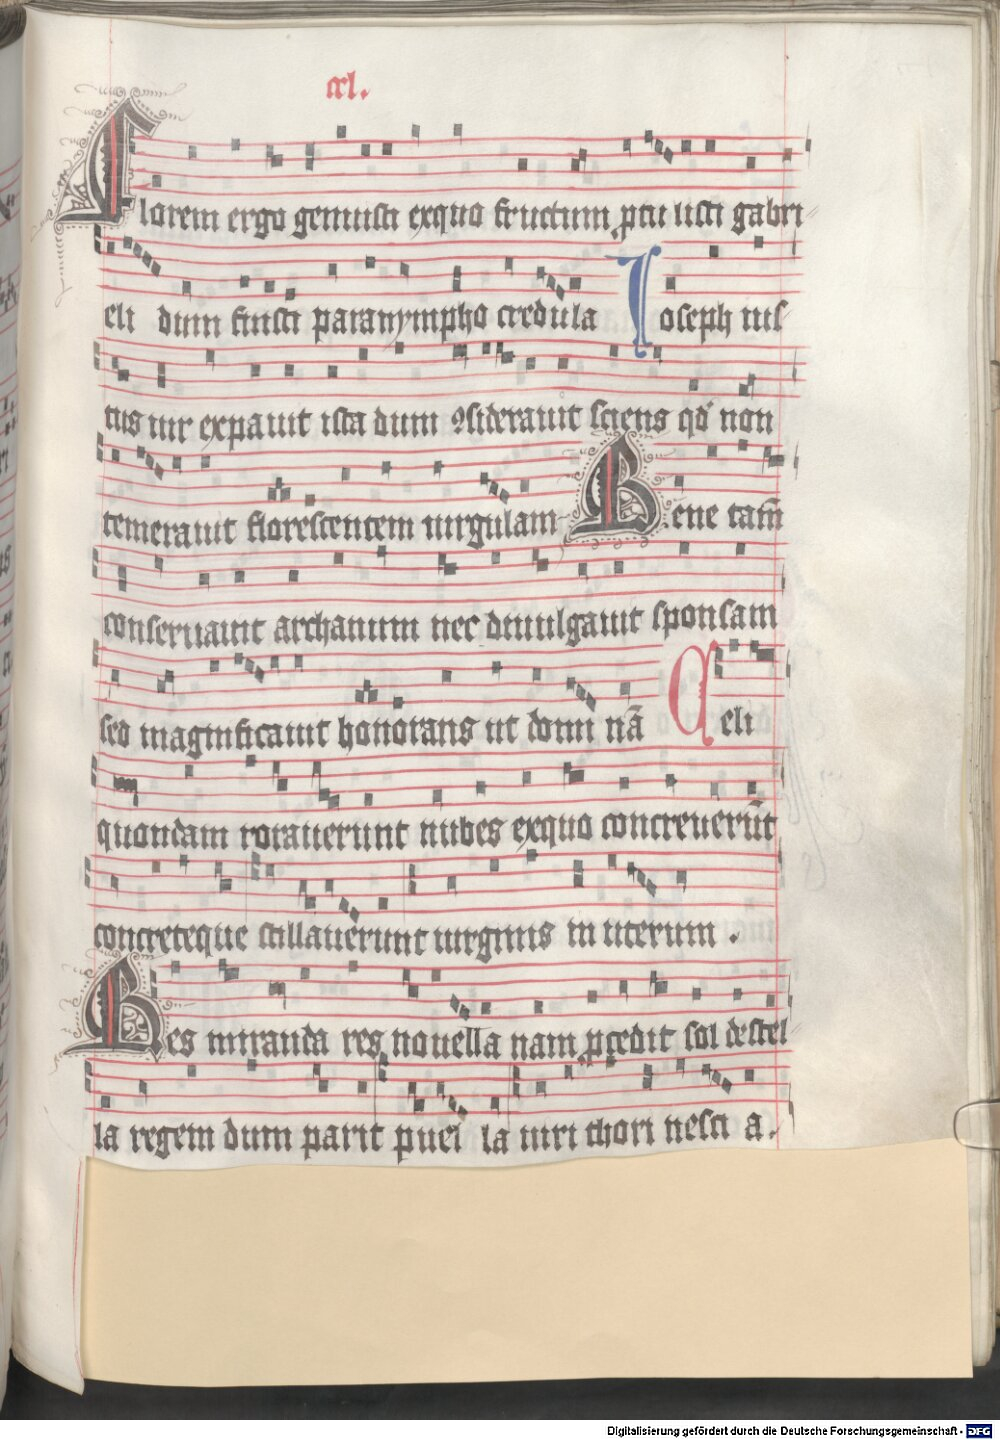 cxl.
Florem ergo genuisti exquo fructum ptulisti gabri
eli dum fuisti paranympho credula Ioseph ius
tus uir expauit ista dum ꝯsiderauit sciens qd' non
temerauit florescentem uirgulam Bene tam̄
conseruauit archanum nec diuulgauit sponsam
sed magnificauit honorans ut domi nā Celi
quondam rorauerunt nubes exquo concreuerūt
concreteque stillauerunt uirginis in uterum .
Res miranda res nouella nam pcedit sol de stel
la regem dum parit puel la uiri thori nesci a.
Digitalisierung gefördert durch die Deutsche Forschungsgemeinschaft - DFG